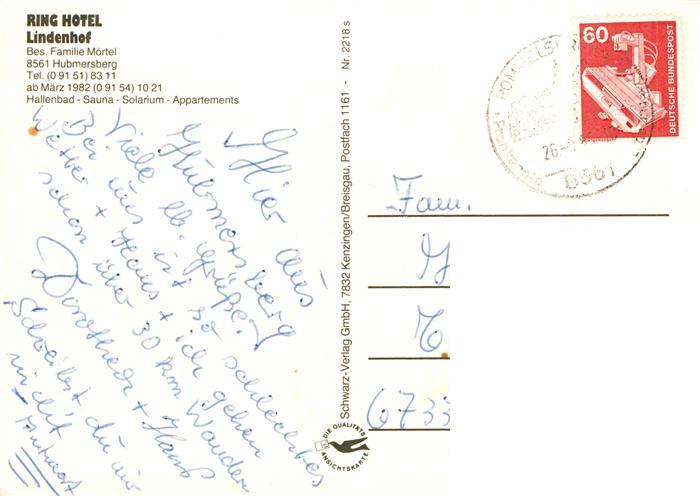 RING HOTEL
Lindenhof
Bes. Familie Mörtel
8561 Hubmersberg
Tel. (0 91 51) 83 11
ab März 1982 (0 91 54) 10 21
Hallenbad - Sauna - Solarium - Appartements
Hier aus
Hubmersberg
Viele lb. Grüße.
Bei uns ist so schlechtes
Wetter + Hans + ich gehen
schon über 30 km Wandern
Dorothea + Hans
Schreibst du mir
nicht
Antwort
Schwarz-Verlag GmbH, 7832 Kenzingen/Breisgau, Postfach 1161 - Nr. 2218 s
DIE QUALITÄTS
ANSICHTSKARTE
60
DEUTSCHE BUNDESPOST
POMMELSBRUNN
8561
Fam.
6733